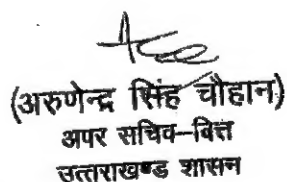 (अरुणेन्द्र सिंह चौहान)
अपर सचिव–वित्त
उत्तराखण्ड शासन